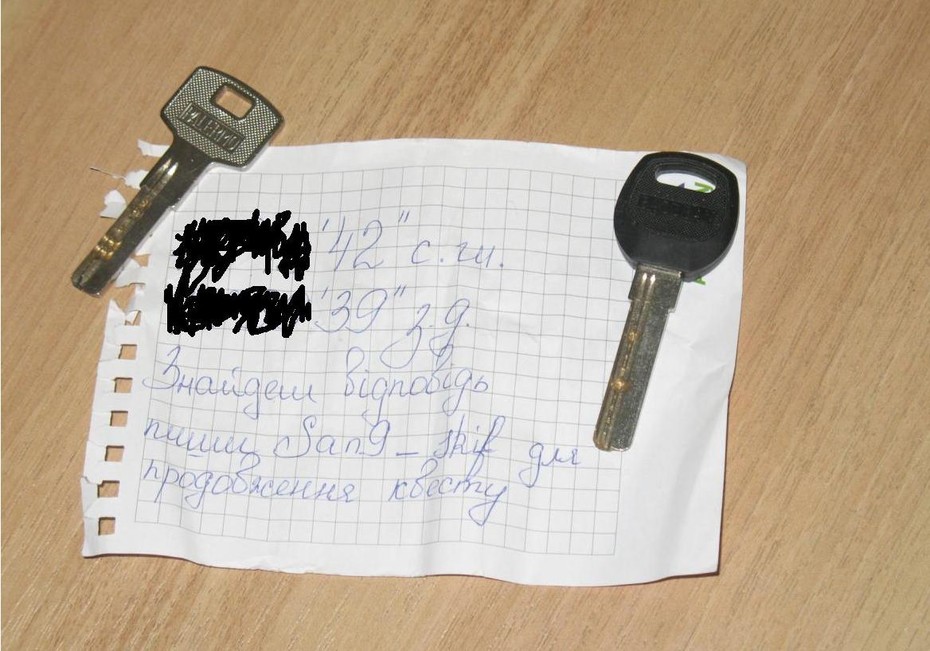 PALERMO
'42" с.ш.
'39" з.д.
Знайдеш відповідь
пиши San9_skif для
продовження квесту